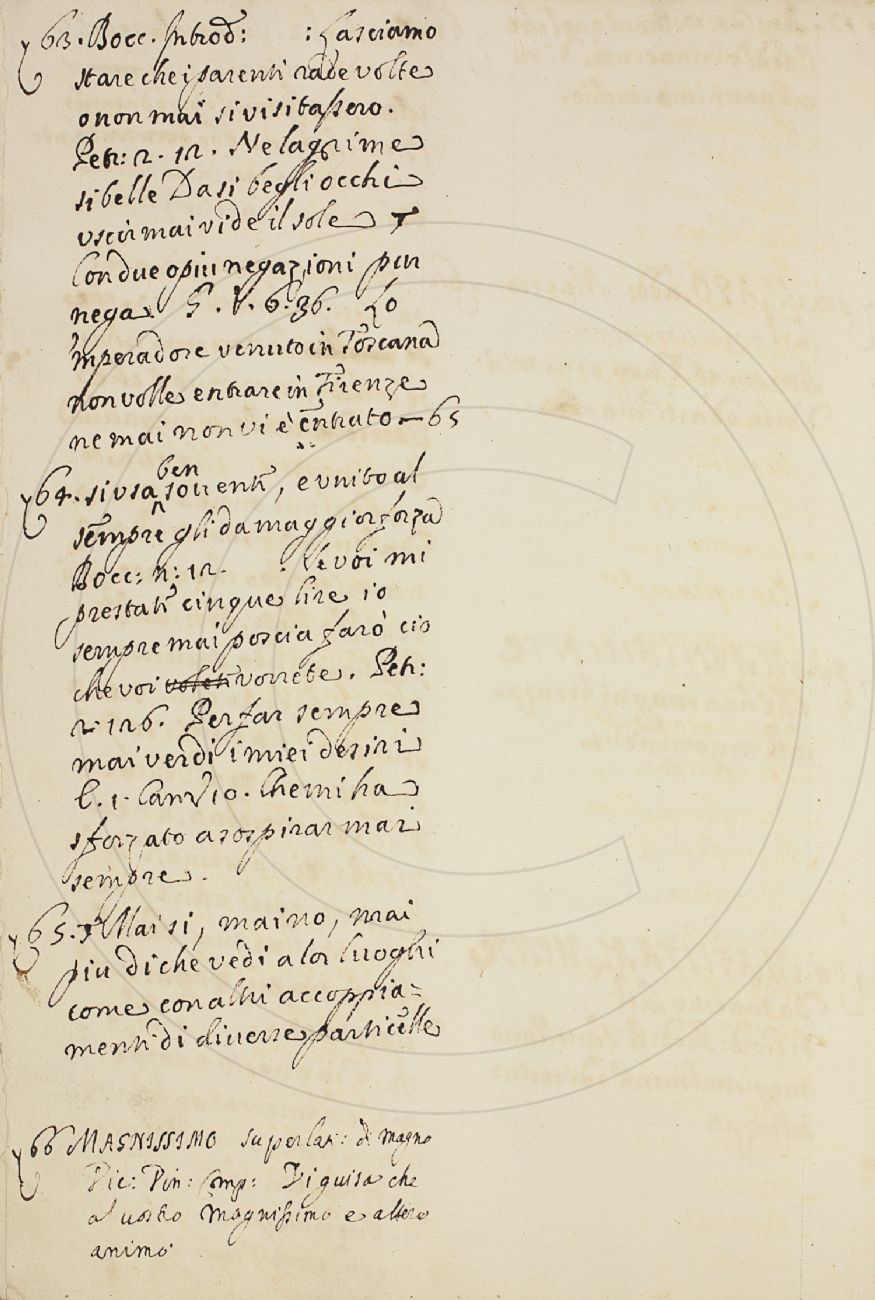 63. Bocc. Introd: : Lasciamo
stare che i parenti rade volte
o non mai si visitassero.
Petr: 2. 12. Ne lagrime
si belle Da si begli occhi
uscir mai vide il sole
Con due o piu negazioni pur
nega. G. V. 6. 36. Lo
'mperadore venuto in Toscana
non volle entrare in Firenze
ne mai non vi è entrato — 65
64. si usa ben souente, e unito al
sempre gli da maggior forza
Bocc: n: 12. : Se voi mi
prestate cinque lire io
sempre mai poscia farò ciò
che voi volete vorrete. Petr:
2. 126. Per far sempre
mai verdi i miei desiri
E. 1. Canz 10. Che mi ha
sforzato a sospirar mai
sempre.
65. Mai si, mai no, mai
piu di che vedi a lor luoghi
come con altri accoppia=
menti di diuerse particelle
66 MAGNISSIMO superlat: di magno
Vic: Pin: Comp: Di guisa che
al uostro magnissimo e altero
animo